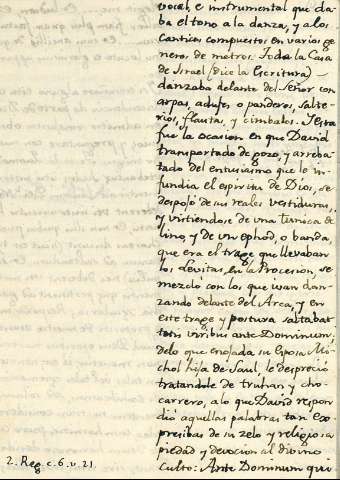 vocal, e instrumental que da-
ba el tono a la danza, y a los
canticos compuestos en varios ge-
neros de metros. Toda la Casa
de Israel (dice la Escritura)
danzaba delante del Señor con
arpas, adufes o panderos, salte-
rios, flautas, y cimbalos. Y esta
fue la ocasion en que David
transportado de gozo, y arreba-
tado del entusiasmo que le in-
fundia el espiritu de Dios, se
despojó de sus reales vestiduras,
y virtiendose de una tunica de
lino, y de un ephod, o banda,
que era el trage que llevaban
los Levitas, en la Procesion, se
mezcló con los que ivan dan-
zando delante del Arca, y en
este trage y postura saltabat
totis viribus ante Dominum;
de lo que enojada su esposa Mi-
chol hija de Saul, le despreció
tratandole de truhan y cho-
carrero, a lo que David respon
dió aquellas palabras tan ex
presibas de su zelo y religiosa
piedad y devocion al divino
culto: Ante Dominum qui
2. Reg. c. 6. v. 21.